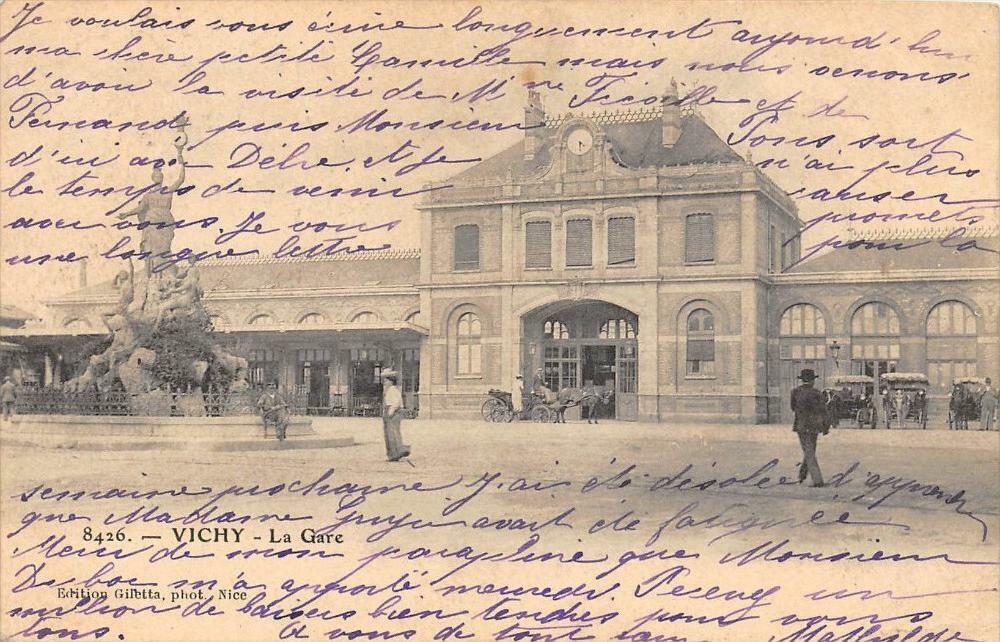 Je voulais vous écrire longuement aujourd'hui
ma chère petite Camille mais nous venons
d'avoir la visite de Mme et de
Fernand puis Monsieur Tous sont
d'ici au Dèhe et je n'ai plus
le temps de venir causer
avec vous. Je vous promets
une longue lettre pour la
semaine prochaine J'ai été désolée d'apprendre
que Madame avait été fatiguée
8426. — VICHY - La Gare
Merci de mon parapluie que Monsieur
Dubac m'a apporté mercredi. Recevez un
Edition Giletta, phot. Nice
million de baisers bien tendres pour vous
tous. A vous de tout cœur Mathilde